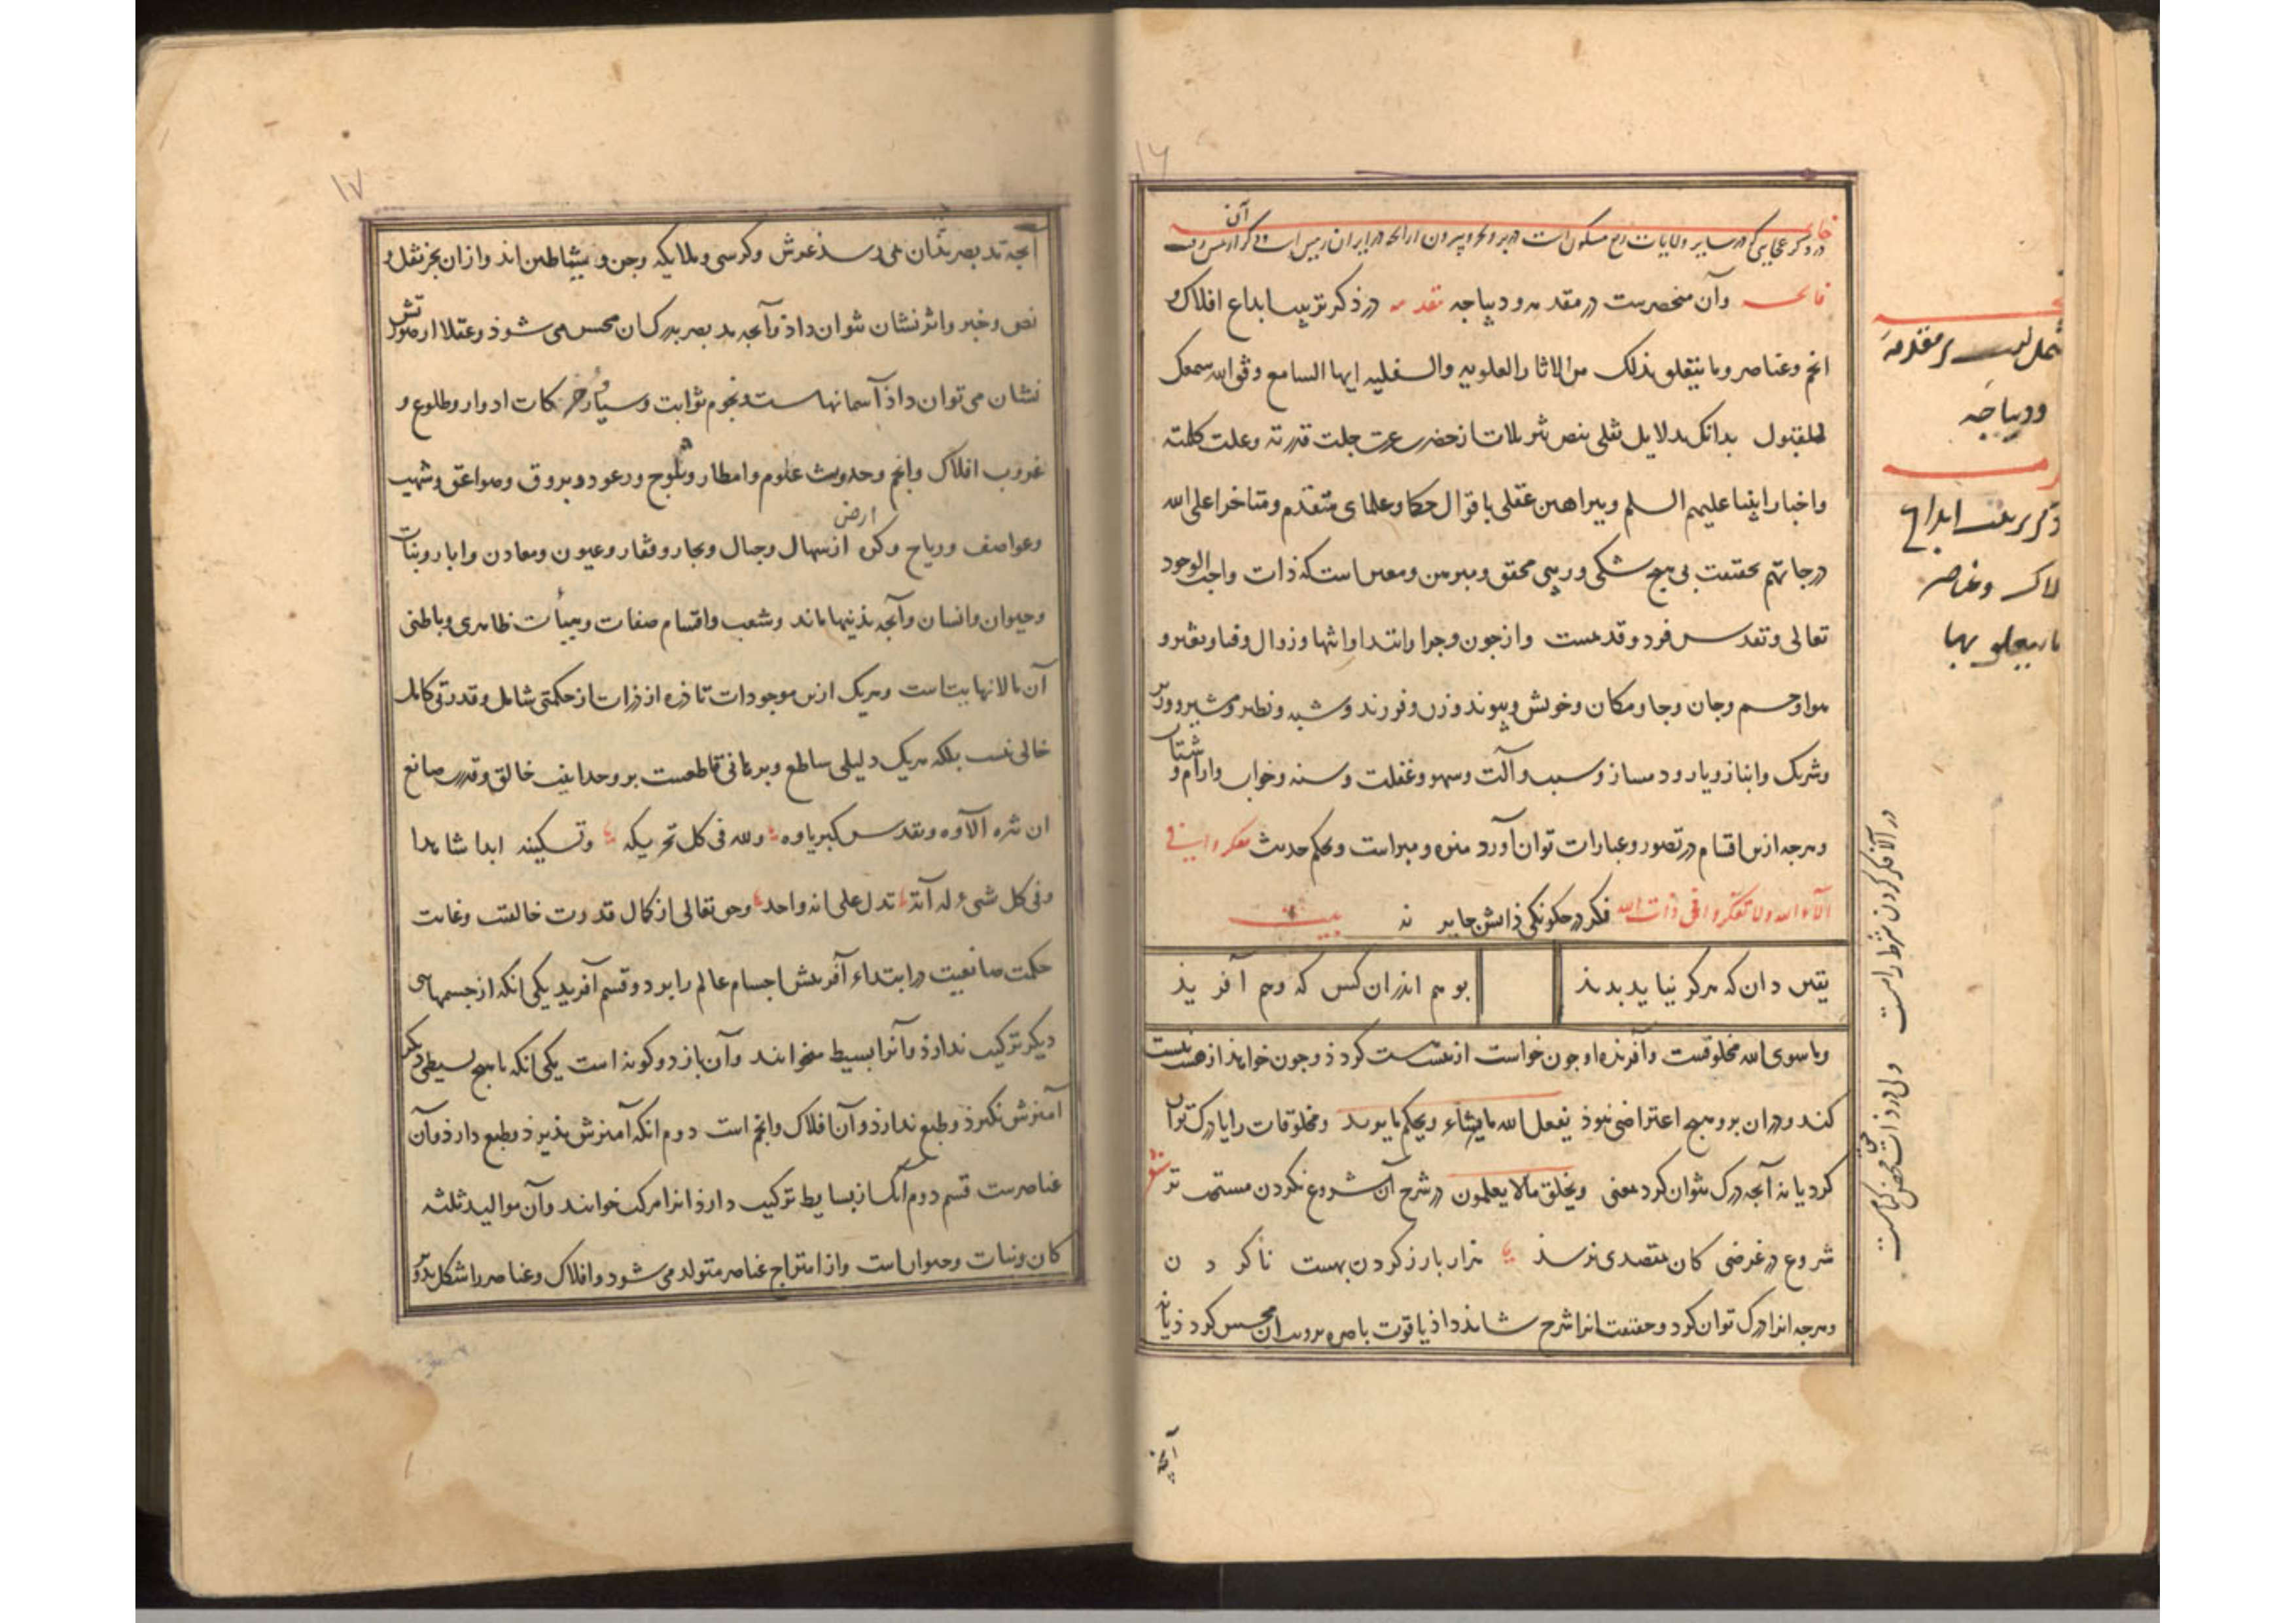 ۱۶
خاتمه
در ذکر عجایبی که در سایر ولایات ربع مسکون است در بر و بحر و بیرون از آنچه در ایران زمین است
فاتحه و آن منحصرست در مقدمه و دیباجه مقدمه در ذکر ترتیب ابداع افلاک و
انجم و عناصر و ما یتعلق بذلک من الاثار العلویه والسفلیه ایها السامع وقو الله سمعک
للقبول بدانک بدلایل نقلی بنص تنزیلات از حضرت عزت جلت قدرته و علت کلمته
واخبار انبیا علیهم السلم و ببراهین عقلی باقوال حکما و علمای متقدم و متاخر اعلی الله
درجاتهم بحقیقت بی هیچ شکی و ریبی محقق و مبرهن و معین است که ذات واجب الوجود
تعالی و تقدس فرد و قدیمست و از چون و چرا و ابتدا و انتها و زوال و فنا و تغیر و
هوا و جسم و جان و جا و مکان و خویش و پیوند و زن و فرزند و شبه و نظیر و مشیر و وزیر
و شریک و انباز و یار و دمساز و سبب و آلت و سهو و غفلت و سنه و خواب و ارام و شتاب
و هرچه ازین اقسام در تصور و عبارات توان آورد منزه و مبراست و بحکم حدیث تفکروا فی
آلاء الله ولا تفکروا فی ذات الله فکر در چکونکی ذاتش جایز نه بیت
یقین دان که هرکز نیاید بدید بوهم اندران کس که وهم آفرید
و ما سوی الله مخلوقست و آفریده او چون خواست از نیست هست کرد و چون خواهد از هست نیست
کند و دران برو هیچ اعتراضی نبوذ یفعل الله ما یشاء و یحکم ما یرید و مخلوقات را یا درک توان
کرد یا نه آنچه درک نتوان کرد معنی و یخلق مالا یعلمون در شرح آن شروع نکردن مستحب تر
شروع در غرضی کان بمقصدی نرسذ هزار بار ز کردن بهست ناکردن
و هرچه انرا درک توان کرد و حقیقت انرا شرح شاید داذ یا قوت باصره بر دیدن آن محسوس کرد ذ یا نه
آنچه
مشتمل است بر مقدمه
و دیباجه
ذکر ترتیب ابداع
افلاک و عناصر
ما یتعلق بها
در آلا فکر کردن شرط راهست ولی در ذات حق محض کناهست
۱۷
آنچه بدید بصر نشان می رسذ عرش و کرسی و ملایکه و جن و شیاطین اند و ازان بجز نقل و
نص و خبر و اثر نشان نتوان داذ و آنچه بدید بصر بدرکسان محسوس می شوذ و عقلا از صورتش
نشان می توان داذ آسمانهاست و نجوم ثوابت و سیاره و حرکات ادوار و طلوع و
غروب افلاک و انجم و حدوث علوم و امطار و ثلوج و رعود و بروق و صواعق و شهب
و عواصف و ریاح و کره ارض از سهال و جبال و بحار و قفار و عیون و معادن و ابار و نبات
و حیوان و انسان و آنچه بذینها ماند و شعب و اقسام صفات و هیأت ظاهری و باطنی
آن مالانهایت است و هریک ازین موجودات تا ذره از ذرات از حکمتی شامل و قدرتی کامل
خالی نیست بلکه هریک دلیلی ساطع و برهانی قاطعست بر وحدانیت خالق و قدرت صانع
ان تنزه آلاؤه و تقدس کبریاوه ولله فی کل تحریکه و تسکینه ابدا شاهدا
و فی کل شیء له آیة تدل علی انه واحد و حق تعالی از کمال قدرت خالقیت و غایت
حکمت صانعیت در ابتداء آفرینش اجسام عالم را بر دو قسم آفرید یکی انکه از جسمهای
دیکر ترکیب ندارذ و آنرا بسیط خوانند و آن باز دو کونه است یکی انکه با هیچ بسیطی دیکر
آمیزش نکیرذ و طبع ندارذ و آن افلاک و انجم است دوم انکه آمیزش پذیرذ و طبع دارذ و آن
عناصرست قسم دوم آنک از بسایط ترکیب دارذ انرا مرکب خوانند و آن موالید ثلثه
کان و نبات و حیوان است و از امتزاج عناصر متولد می شود و افلاک و عناصر را شکل مدور